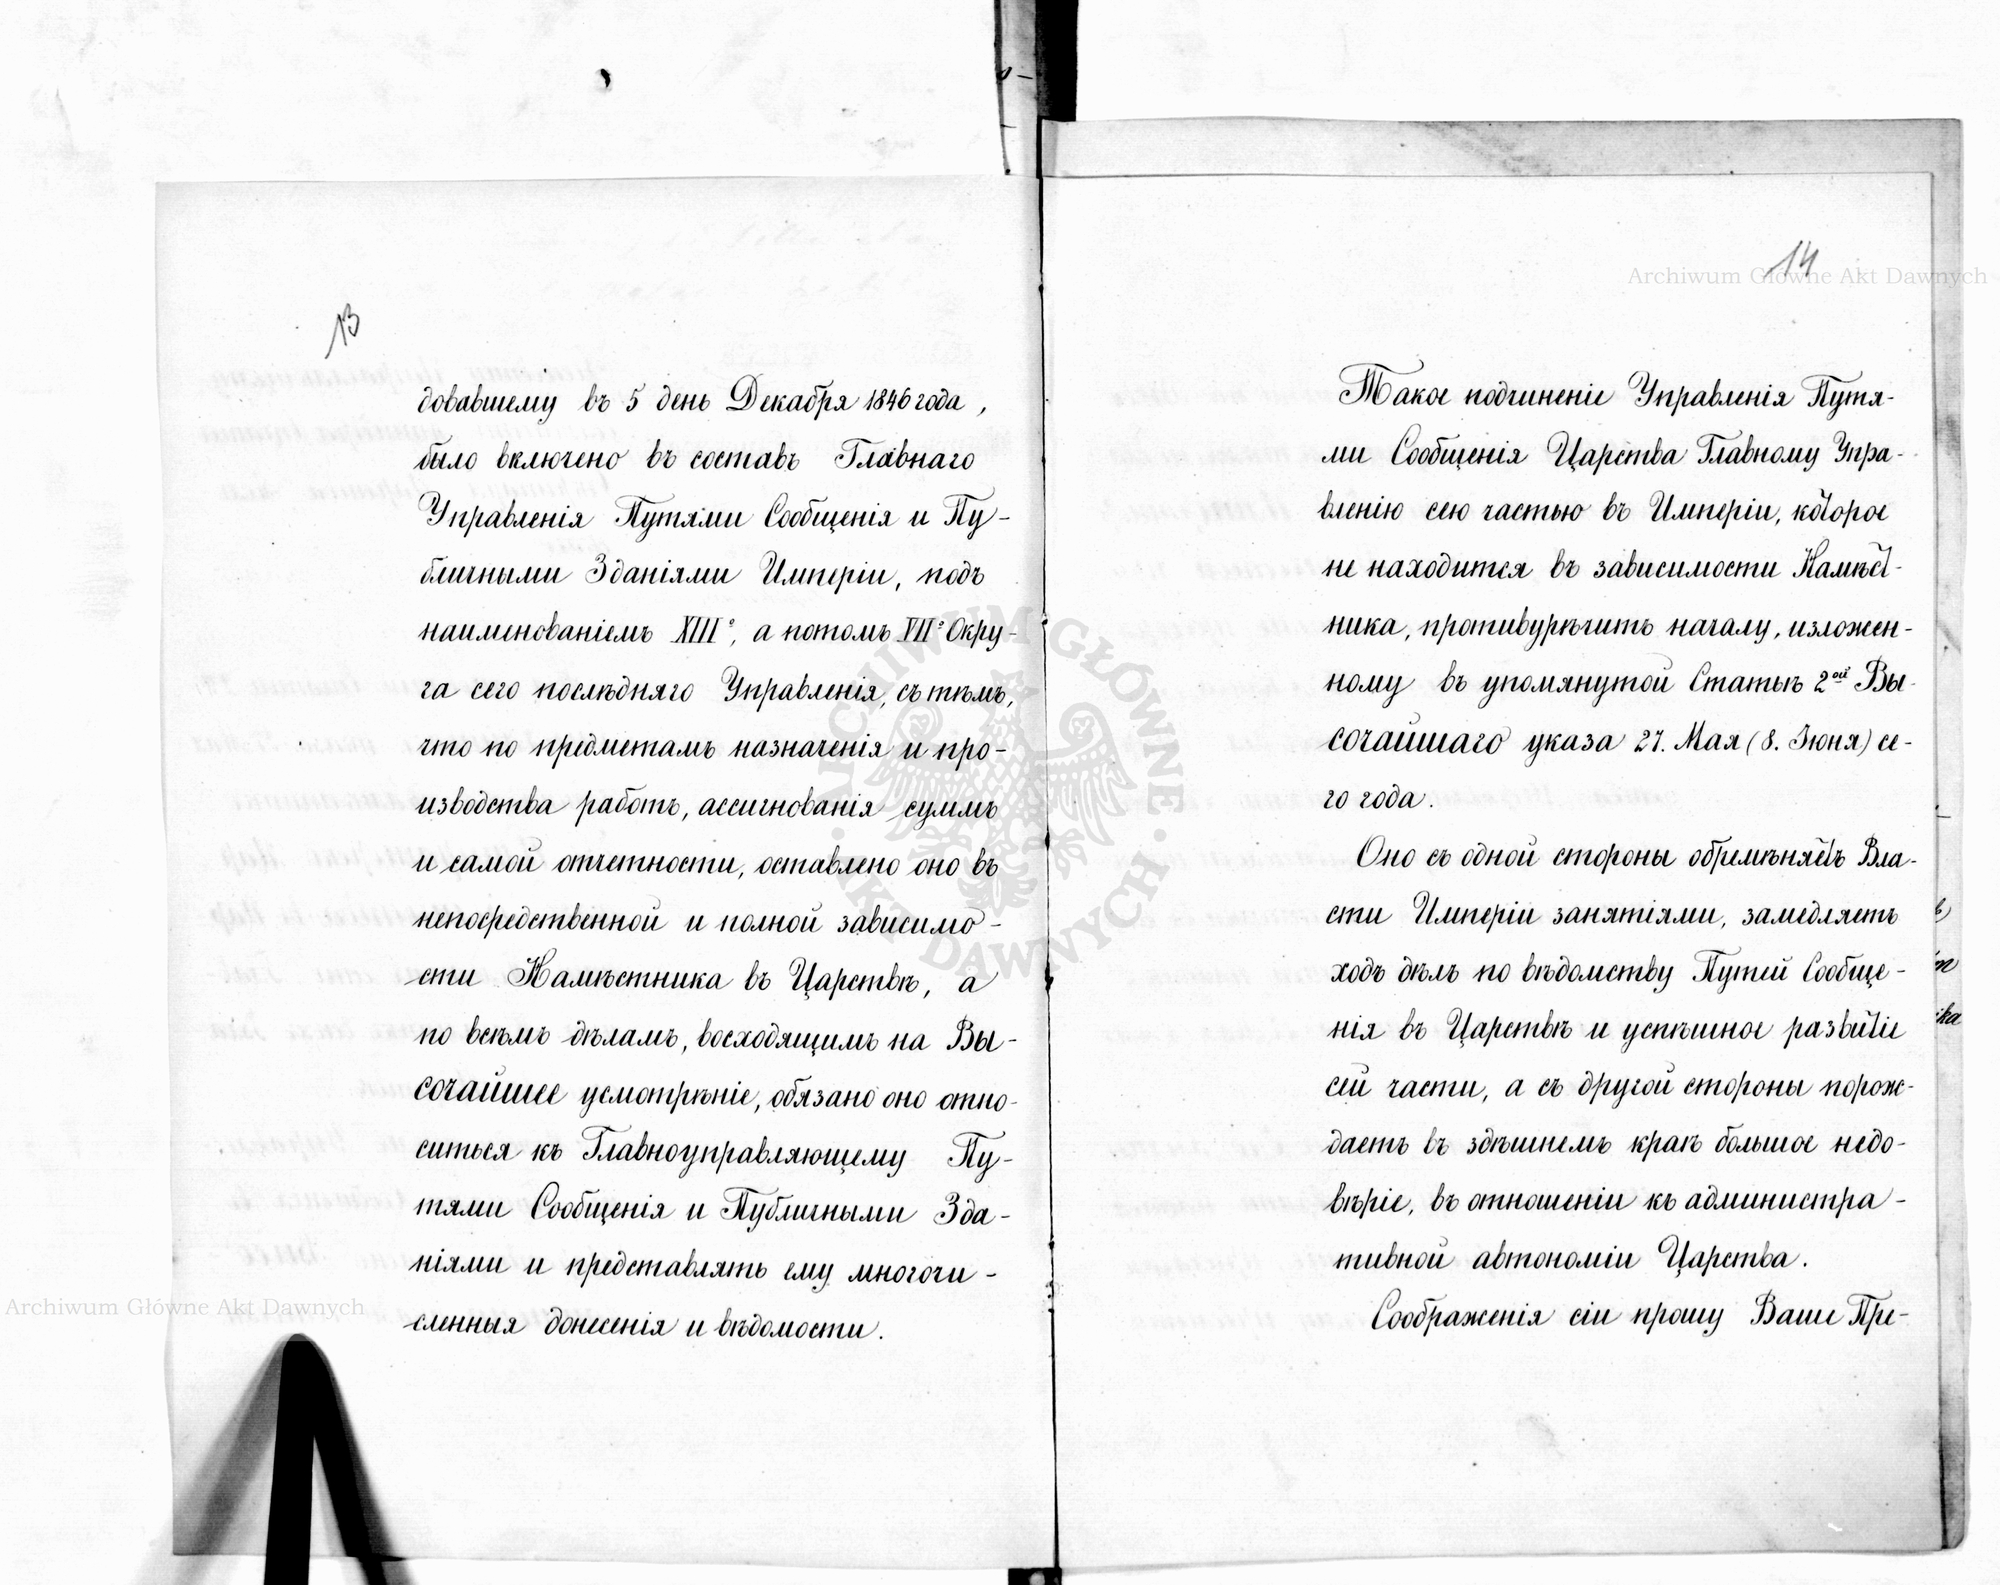 13
довавшему въ 5 день Декабря 1846 года,
было включено въ составъ Главнаго
Управленія Путями Сообщенія и Пу-
бличными Зданіями Имперіи, подъ
наименованіемъ XIIIº, а потомъ VIIº Окру-
га сего послѣдняго Управленія, съ тѣмъ,
что по предметамъ назначенія и про-
изводства работъ, ассигнованія суммъ
и самой отчетности, оставлено оно въ
непосредственной и полной зависимо-
сти Намѣстника въ Царствѣ, а
по всѣмъ дѣламъ, восходящимъ на Вы-
сочайшее усмотрѣніе, обязано оно отно-
ситься къ Главноуправляющему Пу-
тями Сообщенія и Публичными Зда-
ніями и представлять ему многочи-
сленныя донесенія и вѣдомости.
14
Такое подчиненіе Управленія Путя-
ми Сообщенія Царства Главному Упра-
вленію сею частью въ Имперіи, которое
не находится въ зависимости Намѣст-
ника, противурѣчитъ началу, изложен-
ному въ упомянутой Статьѣ 2ой Вы-
сочайшаго указа 27. Мая (8. Іюня) се-
го года.
Оно съ одной стороны обремѣняетъ Вла-
сти Имперіи занятіями, замедляетъ
ходъ дѣлъ по вѣдомству Путей Сообще-
нія въ Царствѣ и успѣшное развитіе
сей части, а съ другой стороны порож-
даетъ въ здѣшнемъ краѣ большое недо-
вѣріе, въ отношеніи къ администра-
тивной автономіи Царства.
Соображенія сіи прошу Ваше Пре-
Archiwum Główne Akt Dawnych
Archiwum Główne Akt Dawnych
ARCHIWUM GŁÓWNE AKT DAWNYCH